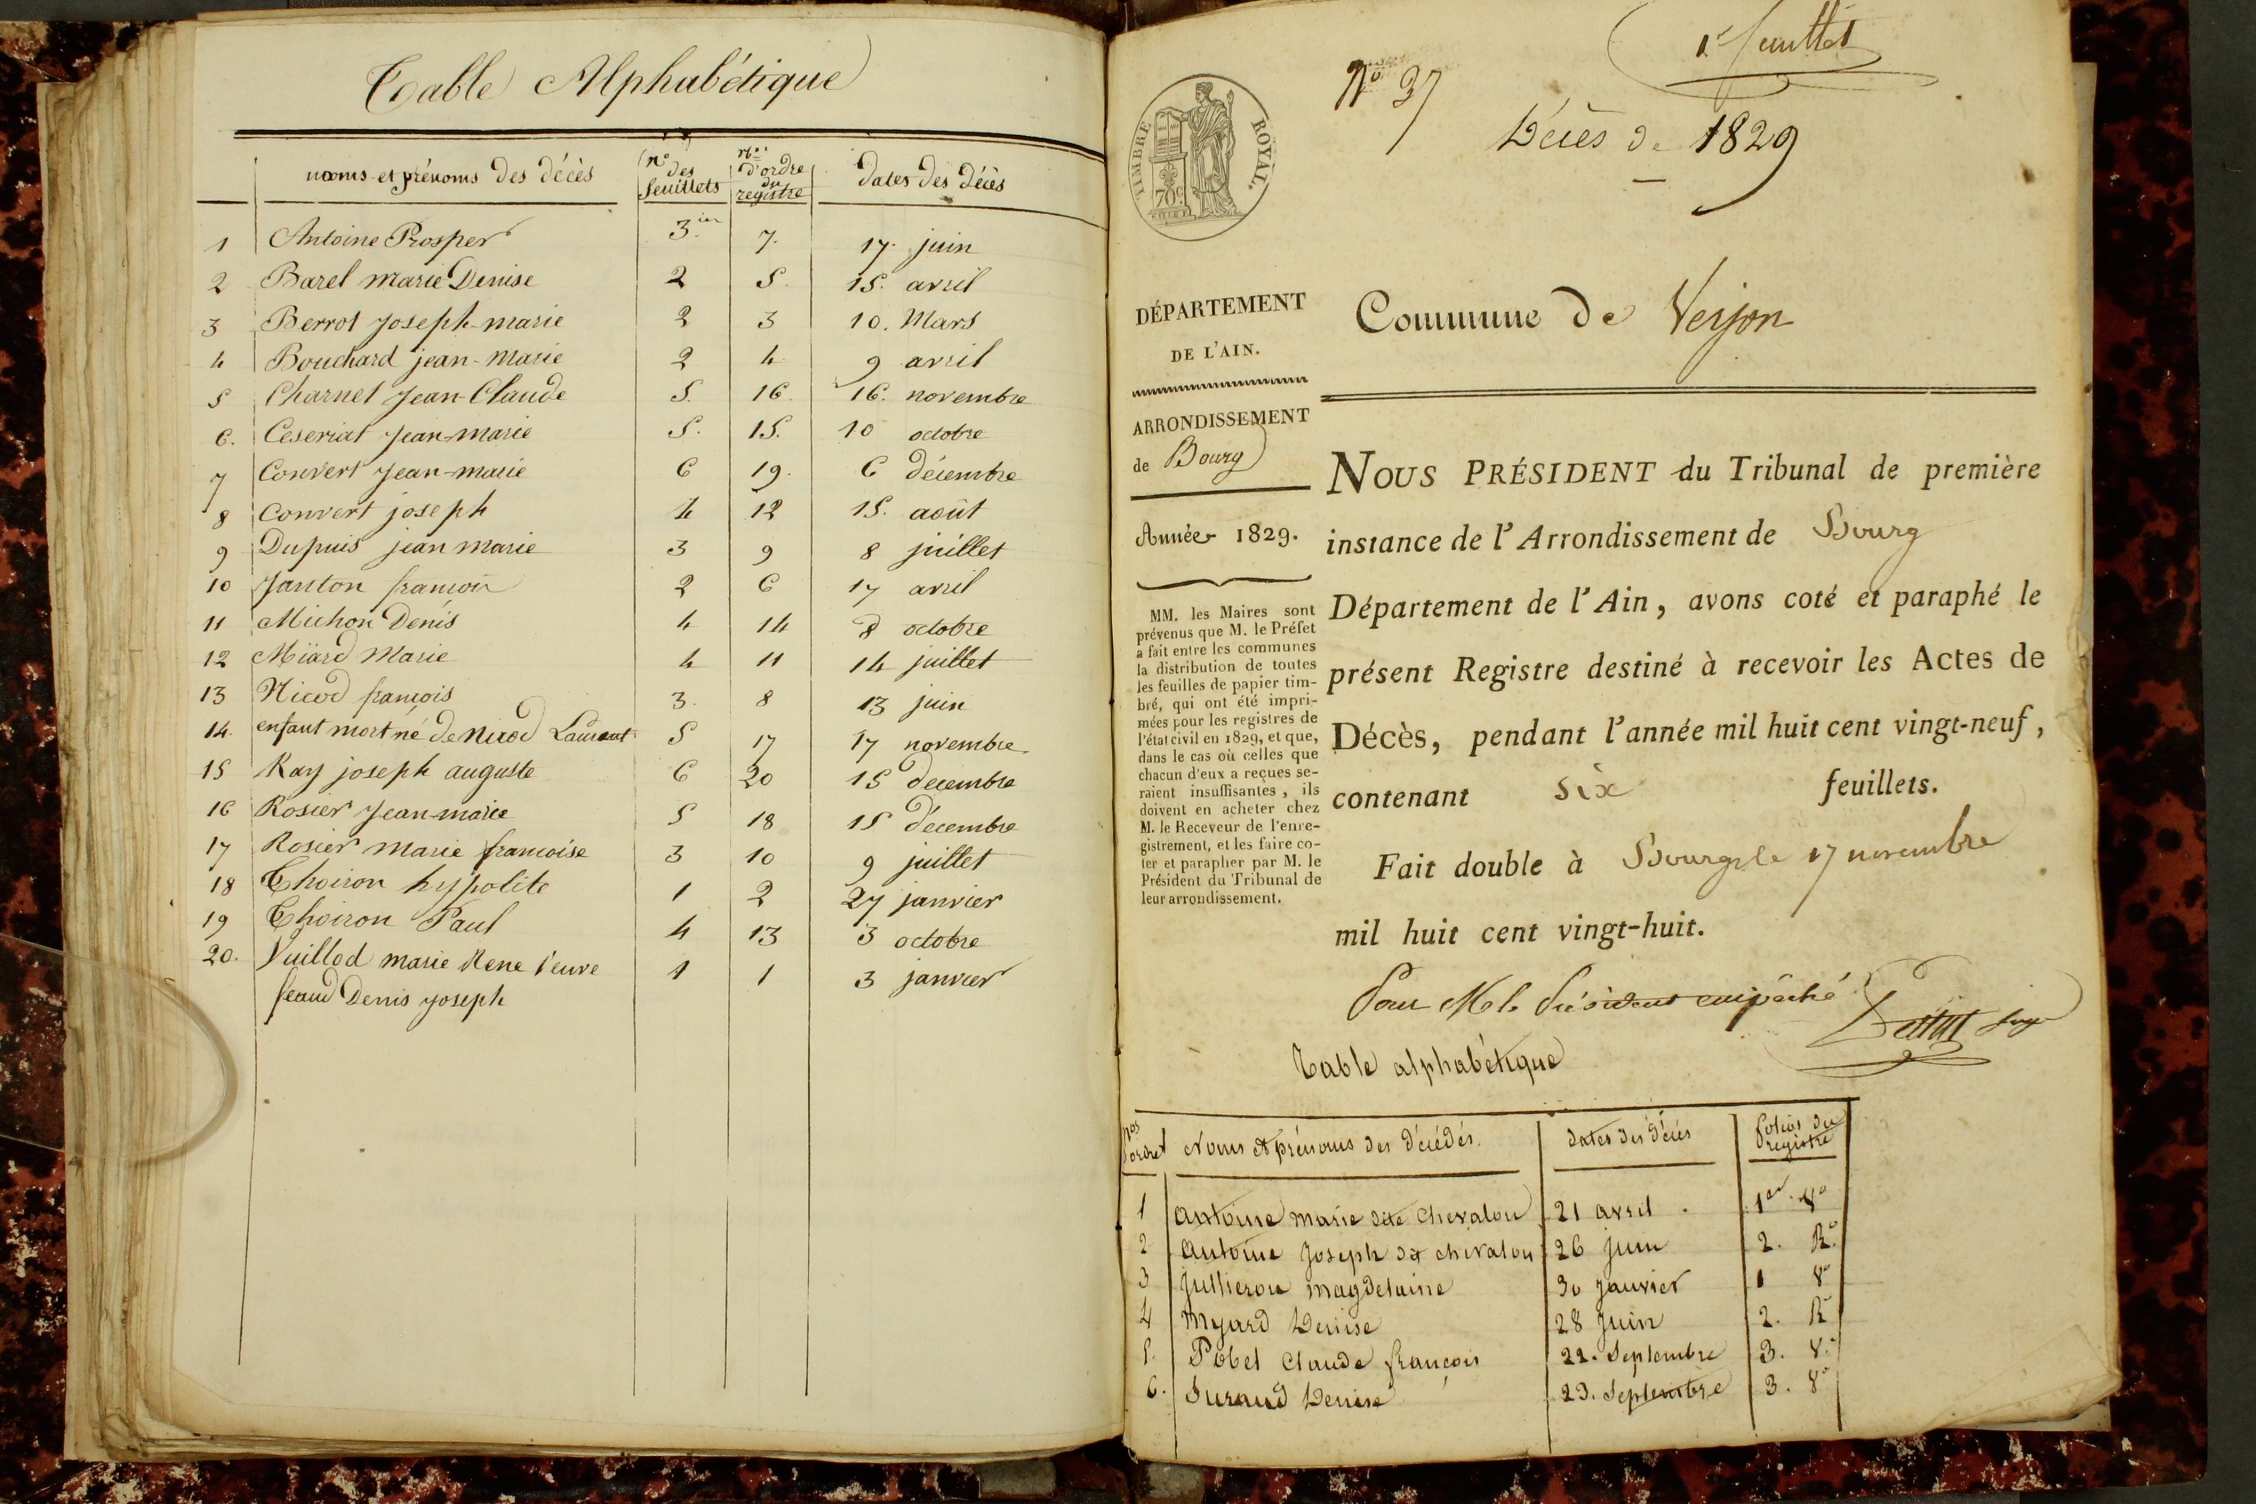 Table Alphabétique
noms et prénoms des décès | nos des feuillets | nos d'ordre du registre | dates des décès
1 Antoine Prosper 3.ier 7. 17. juin
2 Barel marie Denise 2 5. 15. avril
3 Berrot Joseph-marie 2 3 10. Mars
4 Bouchard jean-Marie 2 4 9 avril
5 Charnel Jean-Claude 5. 16. 16. novembre
6. Ceseriat Jean-marie 5. 15. 10 octobre
7 Convert Jean-marie 6 19. 6 décembre
8 Convert joseph 4 12 15. août
9 Dupuis jean marie 3 9 8 juillet
10 Janton francois 2 6 17 avril
11 Michon Denis 4 14 8 octobre
12 Miard Marie 4 11 14 juillet
13 Nicod francois 3. 8 13 juin
14. enfant mort né de Nicod Laurent 5 17 17 novembre
15 Ray joseph auguste 6 20 15 decembre
16 Rosier Jean-marie 5 18 15 décembre
17 Rosier Marie francoise 3 10 9 juillet
18 Choiron hypolite 1 2 27 janvier
19 Choiron Paul 4 13 3 octobre
20. Vuillod marie Rene veuve 1 1 3 janvier
feaud Denis Joseph
1er feuillet
No 37
Décès de 1829
TIMBRE ROYAL.
70c
DÉPARTEMENT
DE L'AIN.
Commune de Verjon
ARRONDISSEMENT
de Bourg
Année 1829.
MM. les Maires sont
prévenus que M. le Préfet
a fait entre les communes
la distribution de toutes
les feuilles de papier tim-
bré, qui ont été impri-
mées pour les registres de
l'état civil en 1829, et que,
dans le cas où celles que
chacun d'eux a reçues se-
raient insuffisantes, ils
doivent en acheter chez
M. le Receveur de l'enre-
gistrement, et les faire co-
ter et parapher par M. le
Président du Tribunal de
leur arrondissement.
NOUS PRÉSIDENT du Tribunal de première
instance de l'Arrondissement de Bourg
Département de l'Ain, avons coté et paraphé le
présent Registre destiné à recevoir les Actes de
Décès, pendant l'année mil huit cent vingt-neuf,
contenant six feuillets.
Fait double à Bourg le 17 novembre
mil huit cent vingt-huit.
Pour M le Président empêché
juge
Table alphabétique
Nos d'ordre | Noms et prénoms des décédés. | dates des décès | folios du registre
1 Antoine marie dite Chevalou 21 avril. 1er. Vo
2 Antoine Joseph dit chevalou 26 juin 2. Ro.
3 Jullieron magdelaine 30 Janvier 1 Vo
4 Myard Denise 28 Juin 2. Ro
5. Pobel Claude françois 22. Septembre 3. Vo
6. Suraud Denise 23. Septembre 3. Vo